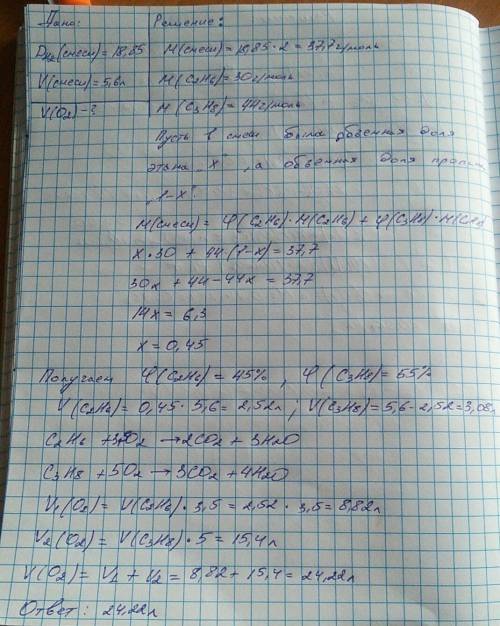 Дано:
Решение:
DH2(смеси) = 18,85
M(смеси) = 18,85·2 = 37,7 г/моль
V(смеси) = 5,6л
M(C2H6) = 30 г/моль
V(O2) - ?
M(C3H8) = 44 г/моль
Пусть в смеси была объемная доля
этана „X", а объемная доля пропана
„1-X".
M(смеси) = φ(C2H6)·M(C2H6) + φ(C3H8)·M(C3H8)
X·30 + 44(1-X) = 37,7
30X + 44 - 44X = 37,7
14X = 6,3
X = 0,45
Получаем φ(C2H6) = 45%, φ(C3H8) = 55%
V(C2H6) = 0,45·5,6 = 2,52л; V(C3H8) = 5,6 - 2,52 = 3,08л
C2H6 + 3,5O2 → 2CO2 + 3H2O
C3H8 + 5O2 → 3CO2 + 4H2O
V1(O2) = V(C2H6)·3,5 = 2,52·3,5 = 8,82л
V2(O2) = V(C3H8)·5 = 15,4л
V(O2) = V1 + V2 = 8,82 + 15,4 = 24,22л
Ответ: 24,22л